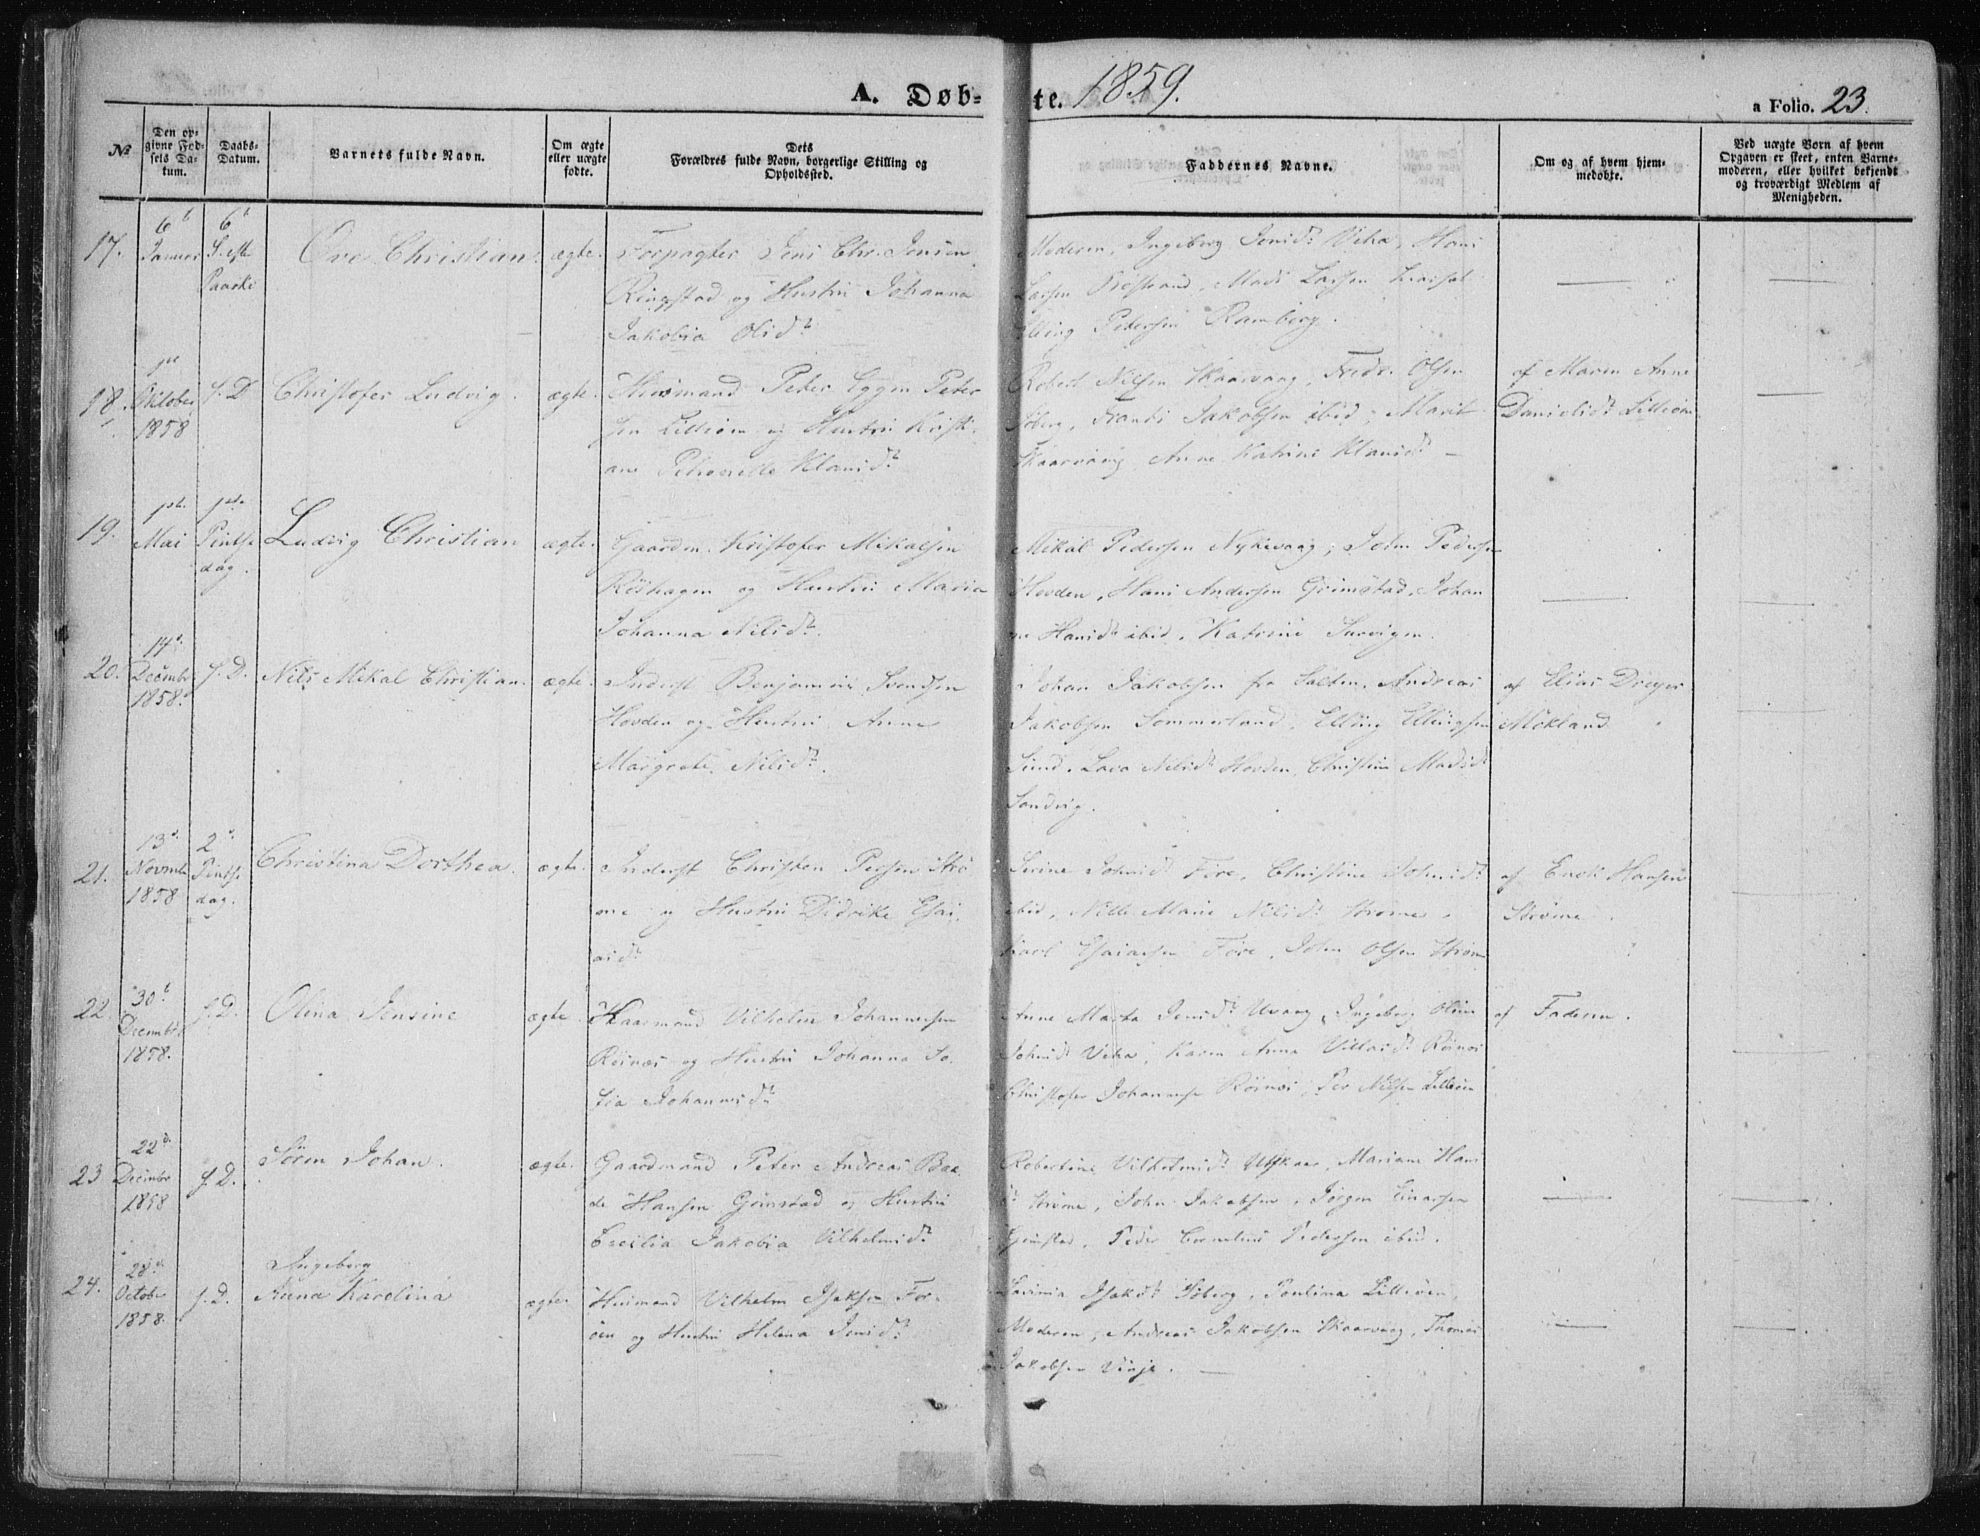 A. Døb-te. 1859.
a Folio. 23.
№
Den op-
givne Fød-
sels Da-
tum.
Daabs-
Datum.
Barnets fulde Navn.
Om ægte
eller uægte
fødte.
Dets
Forældres fulde Navn, borgerlige Stilling og
Opholdssted.
Faddernes Navne.
Om og af hvem hjem-
medøbte.
Ved uægte Born af hvem
Opgaven er skeet, enten Barne-
moderen, eller hvilket bekjendt
og troværdigt Medlem af
Menigheden.
17. 6t Januar 6t S. eft. Paaske Ove Christian. ægte. Forpagter Jens Chr. Jensen
Ringstad og Hustru Johanna
Jakobia Olsdtr
Moderen, Ingeborg Jensdtr Vika, Hans
Larsen, Mads Larsen
Elling Pedersen Ramberg.
18. 1ste Oktober 1858 f. D. Christofer Ludvig. ægte. Husmand Peter Eggen Peter
sen Lilleøen og Hustru Kristi-
ane Petronelle Klausdtr
Robert Nilsen Skaarvaag, Fredr. Olsen
Søberg, Frants Jakobsen ibid, Marit
Skaarvaag, Anne Katrine Klausdtr
af Maren Anne
Danielsdtr Lilleøen
19. 1ste Mai 1ste Pintse dag. Ludvig Christian ægte. Gaardm. Kristofer Mikalsen
Røshagen og Hustru Maria
Johanna Nilsdtr.
Mikal Pedersen Nykvaag, John Pedersen
Hovden, Hans Andersen Grimstad, Johan
ne Hansdtr ibid, Katrine
20. 14de Decembr 1858. f. D. Nils Mikal Christian. ægte. Inderst Benjamin Svendsen
Hovden og Hustru Anne
Margrete Nilsdtr.
Johan Jakobsen fra Salten, Andreas
Jakobsen Sommerland, Elling Ellingsen
Sund, Lava Nilsdtr Hovden, Christine Madsdtr
Sandvig.
af Elias Dreyer
Mokland
21. 13de Novmbr 1858 2d. Pintse dag. Christina Dorthea. ægte. Inderst Christen Persen Strø
me og Hustru Didrike Esai-
asdtr
Serine Johnsdtr Føre, Christine Johnsdtr
ibid, Nille Marie Nilsdtr Strøme,
Karl Esaiasen Føre, John Olsen Strøme
af Enok Hansen
Strøme.
22. 30t Decembr 1858. f. D. Olina Jensine ægte. Kaarmand Vilhelm Johannessen
Roinæs og Hustru Johanna So-
fia Johannesdtr
Anne Marta Jensdtr Uvaag, Ingeborg Oline
Johnsdtr Vika, Karen Anna Villasdtr Roinæs
Christofer Johannesen Roinæs, Per Nilsen Lilleøen
af Faderen.
23 22d. Decembr 1858 f. D. Søren Johan. ægte. Gaardmand Peter Andreas Baa-
de Hansen Grimstad og Hustru
Cecilia Jakobia Vilhelmsdtr
Robertine Vilhelmsdtr Utskaar, Mariane Hans
dtr Strøme, John Jakobsen, Jørgen Einarsen
Grimstad, Peder Cornelius Pedersen ibid.
24. 28de October 1858. f. D. Ingeborg
Anna Karolina ægte. Husmand Vilhelm Isaksen For-
øen og Hustru Helena Jensdtr
Lavinia Isaksdtr Søberg, Paulina Lilleøen,
Moderen, Andreas Jakobsen Skaarvaag, Thomas
Jakobsen Vinje.